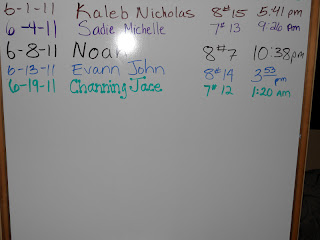 6-1-11 Kaleb Nicholas 8#15 5:41 pm
6-4-11 Sadie Michelle 7#13 9:26 pm
6-8-11 Noah 8#7 10:38pm
6-13-11 Evann John 8#14 3:53 pm
6-19-11 Channing Jace 7#12 1:20 am